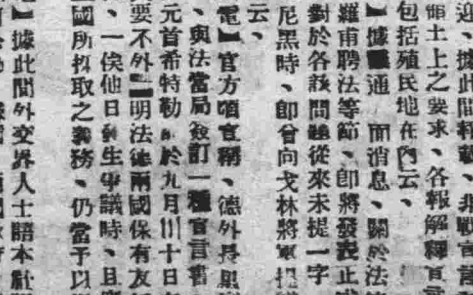 通、據此間報載、非戰宣言
領土上之要求、各報解釋宣言
包括殖民地在內云、
】據 通 面消息、關於法
羅甫聘法等節、卽將發表正
對於各該問題從來未提一字
尼黑時、卽曾向戈林將軍提
云、
電】官方頃宣稱、德外長
、與法當局簽訂一種宣言書
元首希特勒 於九月三十日
要不外 明法德兩國保有友
、一俟他日發生爭議時、且
國所採取之義務、仍當予以
】據此間外交界人士語本社